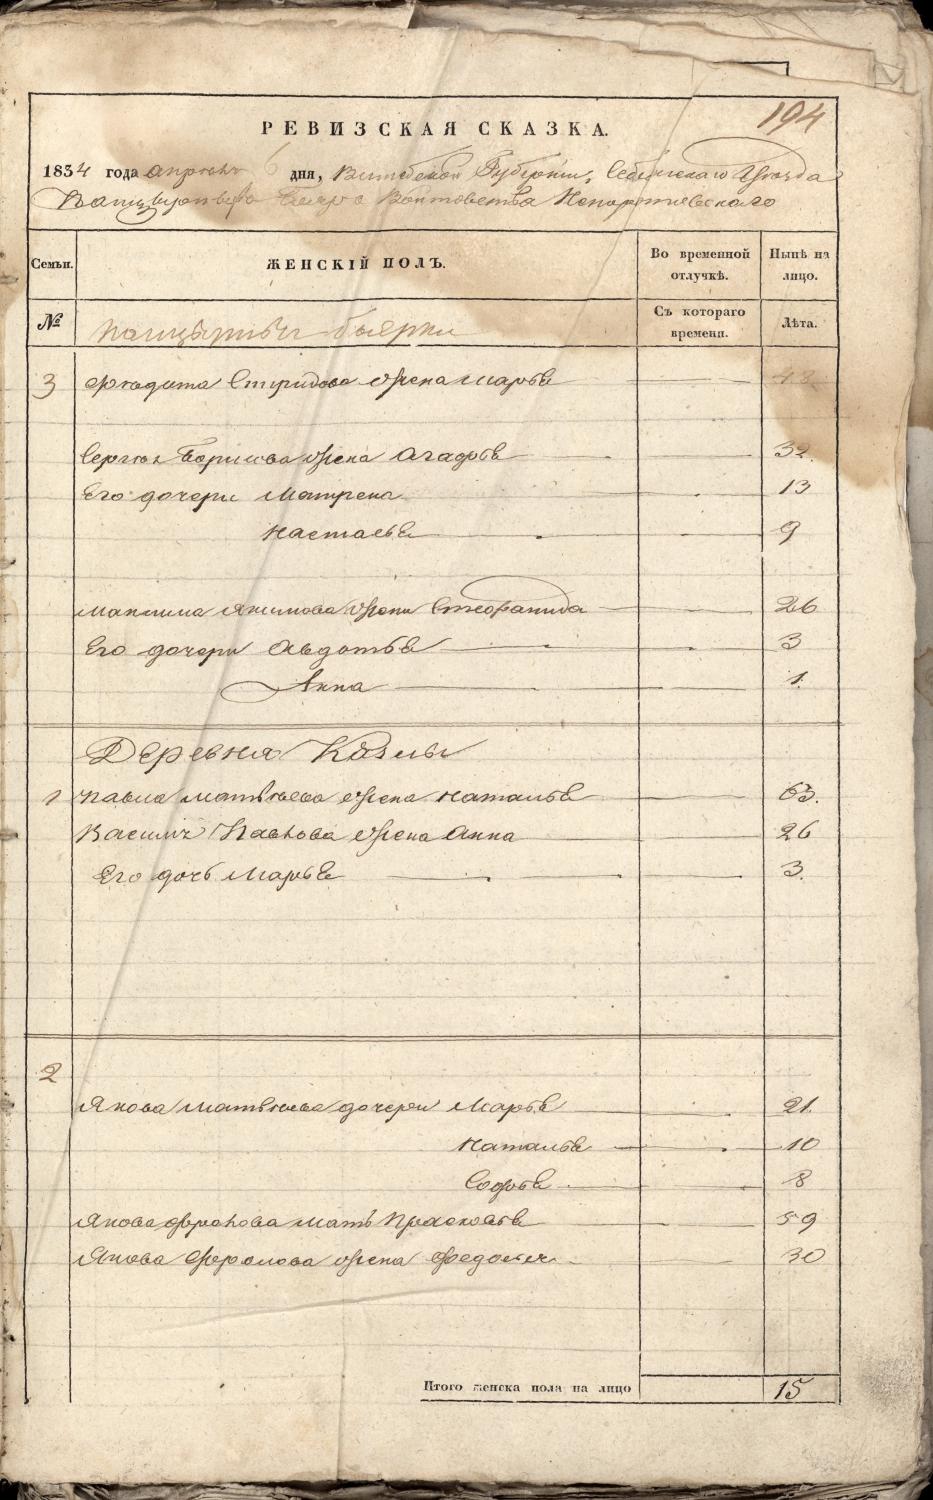 194
РЕВИЗСКАЯ СКАЗКА.
1834 года апреля 6 дня, Витебской Губернiи, Себежскаго Уезда
Войтовства
Семьи. ЖЕНСКIЙ ПОЛЪ. Во временной отлучкѣ. Нынѣ на лицо.
№ панцырныи боярки Съ котораго времени. Лѣта.
3 Стридова жена Марья 48
Борисова жена Агафья 32
Его дочери Матрена 13
Настасья 9
Максима Якимова жена Степанида 26
Его дочери Авдотья 3
Анна 1
Деревня Козлы
1 Павла Матвѣева жена Наталья 63.
Василiя Павлова жена Анна 26
Его дочь Марья 3.
2
Якова Матвѣева дочери Марья 21.
Наталья 10
Софья 8
Якова Фролова мать Прасковья 59
Якова Фролова жена Федосья 30
Итого женска пола на лицо 15